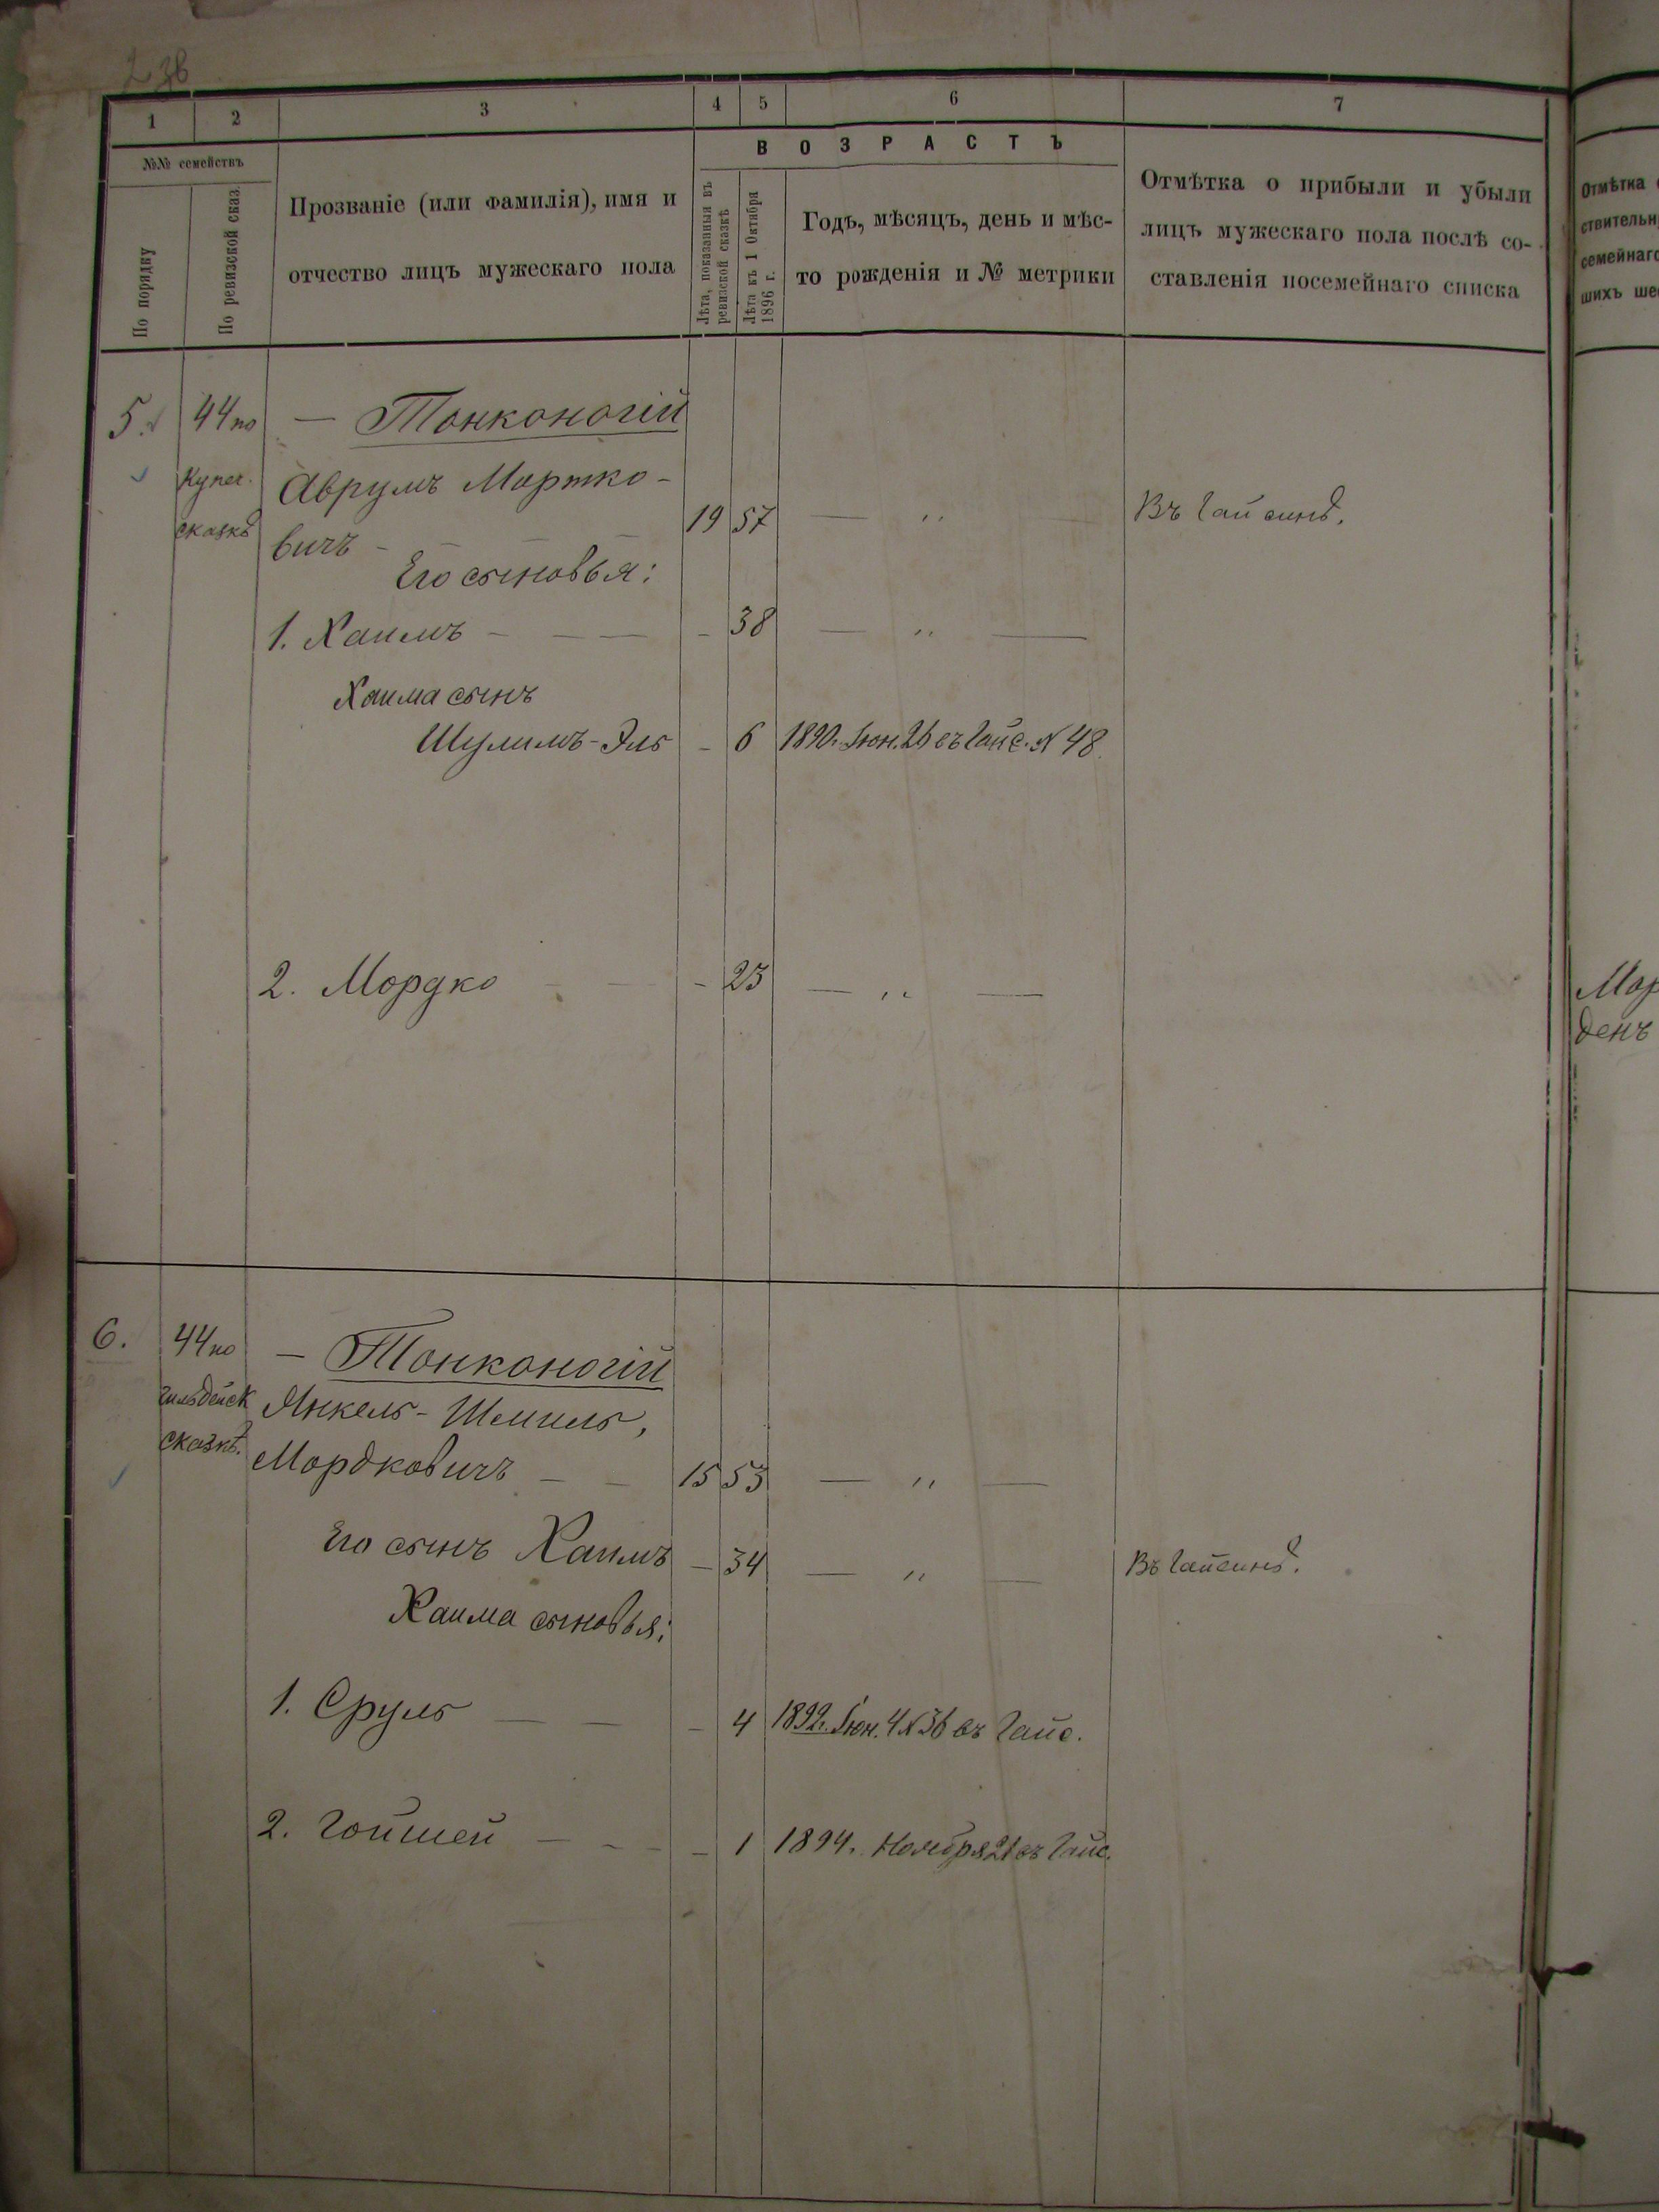 1 2 3 4 5 6 7
№№ семействъ
По порядку
По ревизской сказ.
Прозваніе (или фамилія), имя и
отчество лицъ мужескаго пола
ВОЗРАСТЪ
Лѣта, показанныя въ
ревизской сказкѣ
Лѣта къ 1 Октября
1896 г.
Годъ, мѣсяцъ, день и мѣс-
то рожденія и № метрики
Отмѣтка о прибыли и убыли
лицъ мужескаго пола послѣ со-
ставленія посемейнаго списка
Отмѣтка
ствительн
семейнаго
шихъ
5. 44 по — Тонконогій
Купеч.
сказкѣ
Аврумъ Мортко-
вичъ — 19 57 — „ — Въ Гайсинѣ.
Его сыновья:
1. Хаимъ — — — - 38 — „ —
Хаима сынъ
Шулимъ-Эль - 6 1890. Іюн. 26 въ Гайс. № 48.
2. Мордко — - 23 — „ —
Мор
денъ
6. 44 по — Тонконогій
гильдейск
сказкѣ.
Янкель-Шмиль,
Мордковичъ — — 15 53 — „ —
Его сынъ Хаимъ - 34 — „ — Въ Гайсинѣ.
Хаима сыновья:
1. Сруль — — - 4 1892. Іюн. 4 № 36 въ Гайс.
2. Гойшей — - - - 1 1894. Ноября 21 въ Гайс.